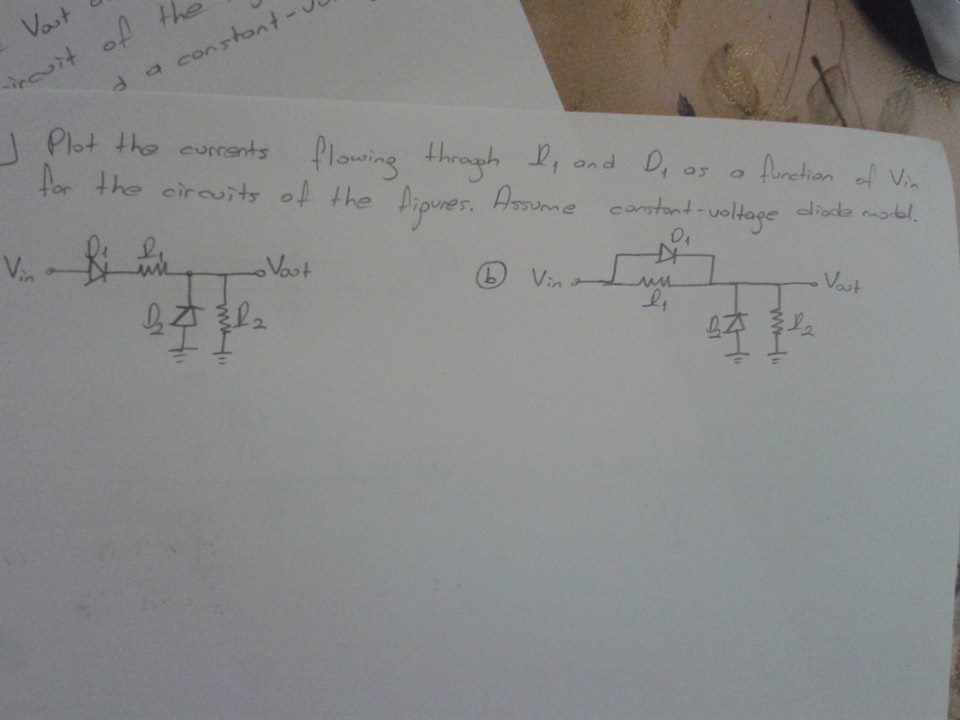 Vout
circuit of the
a constant-
Plot the currents flowing through R1 and D1 as a function of Vin
for the circuits of the figures. Assume constant-voltage diode model.
Vin D1 R1 Vout
D2 R2
b Vin D1 R1 Vout
D2 R2